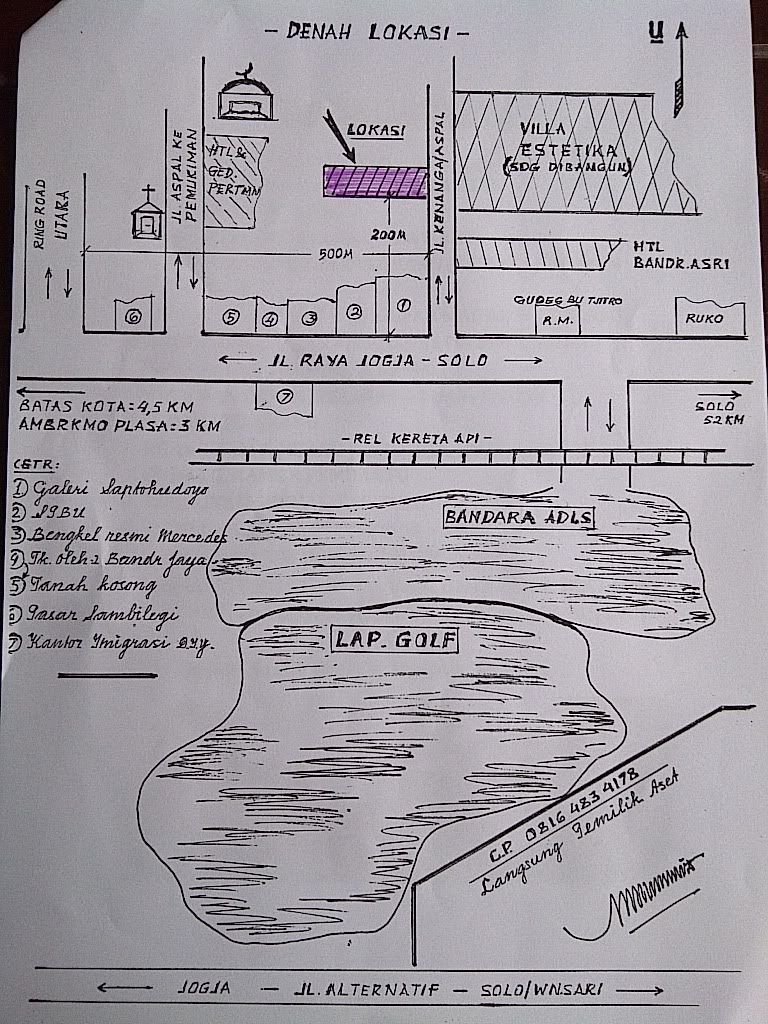 - DENAH LOKASI -
U
LOKASI
HTL &
GED.
PERTMN
VILLA
ESTETIKA
(SDG DIBANGUN)
RING ROAD
UTARA
JL ASPAL KE
PEMUKIMAN
JL. KENANGA/ASPAL
200M
500M
HTL
BANDR.ASRI
GUDEG BU TJITRO
R.M.
RUKO
6
5
4
3
2
1
JL. RAYA JOGJA - SOLO
7
BATAS KOTA = 4,5 KM
AMBRKMO PLASA = 3 KM
SOLO
52 KM
- REL KERETA API -
CETR:
1 Galeri Saptohudoyo
2
3 Bengkel resmi Mercedes
4 Tk. oleh-2 Bandr Jaya
5 Tanah kosong
6 Pasar Sambilegi
7 Kantor Imigrasi DIY.
BANDARA ADIS
LAP. GOLF
C.P. 0816 483 4178
Langsung Pemilik Aset
JOGJA - JL. ALTERNATIF - SOLO/WNSARI